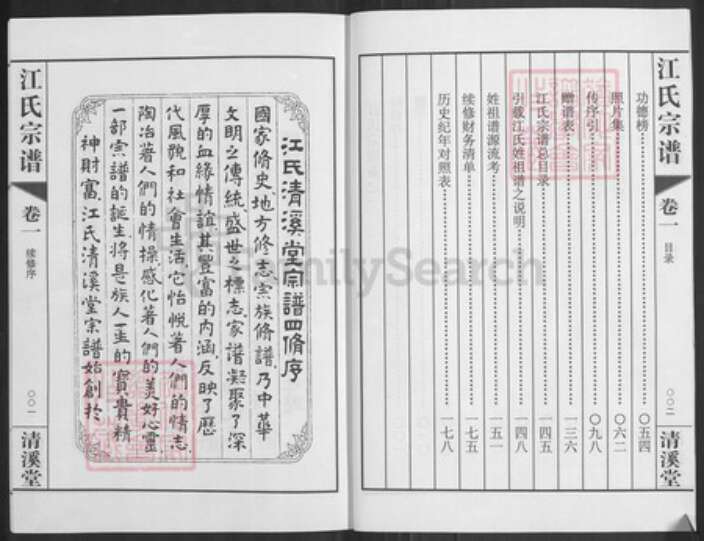 江氏宗谱
卷一
目录
〇〇二
清溪堂
功德榜 〇五四
照片集 〇六二
传序引 〇九八
赠谱表 一三六
江氏宗谱总目录 一四五
引载江氏姓祖谱之说明 一四八
姓祖谱源流考 一五一
续修财务清单 一七五
历史纪年对照表 一七八
江氏清溪堂宗譜四脩序
國家脩史地方修志宗族脩譜乃中華
文明之傳統盛世之標志家谱凝聚了深
厚的血緣情誼其豐富的内涵反映了歷
代風貌和社會生活它怡悦著人們的情志
陶冶著人們的情操感化著人們的美好心靈
一部宗譜的誕生将是族人一生的寶貴精
神財富江氏清溪堂宗譜始創於
江氏宗谱
卷一
续修序
〇〇一
清溪堂
FamilySearch